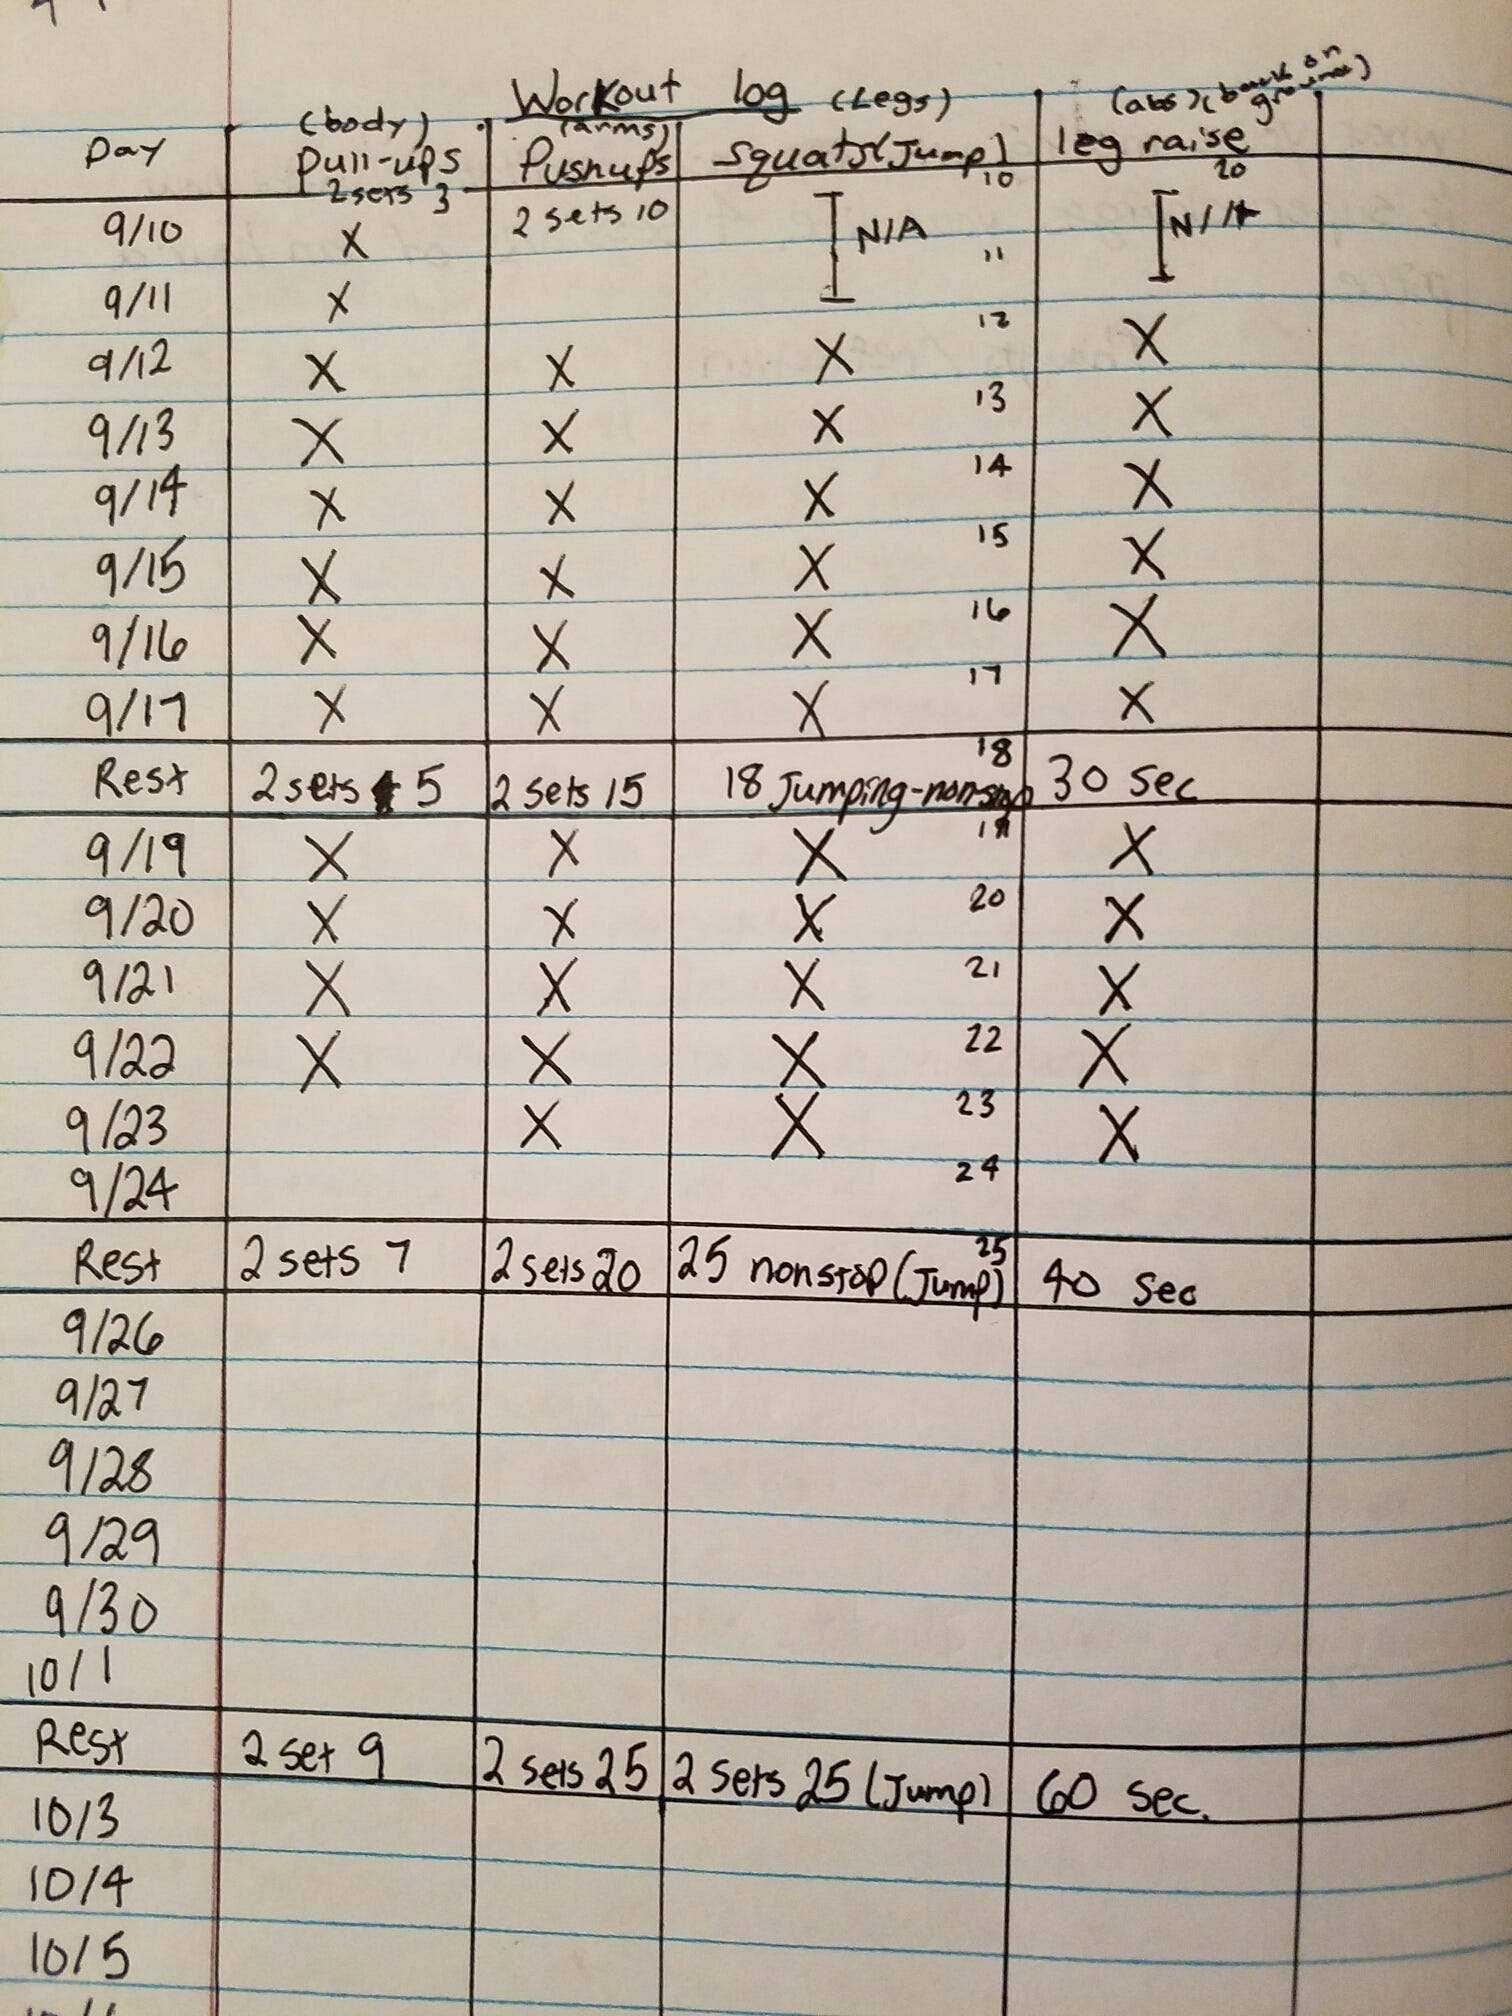 Workout log (Legs) (abs) (back on ground)
(body) (arms)
Day Pull-ups Pushups Squats (Jump) leg raise
2 sets 3 10 20
9/10 X 2 sets 10 N/A N/A
11
9/11 X
12
9/12 X X X X
13
9/13 X X X X
14
9/14 X X X X
15
9/15 X X X X
16
9/16 X X X X
17
9/17 X X X X
18
Rest 2 sets 5 2 sets 15 18 Jumping-nonstop 30 sec
19
9/19 X X X X
20
9/20 X X X X
21
9/21 X X X X
22
9/22 X X X X
23
9/23 X X X
24
9/24
25
Rest 2 sets 7 2 sets 20 25 nonstop (Jump) 40 sec
9/26
9/27
9/28
9/29
9/30
10/1
Rest 2 set 9 2 sets 25 2 sets 25 (Jump) 60 sec.
10/3
10/4
10/5